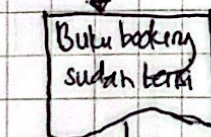 Buku booking
sudah terisi